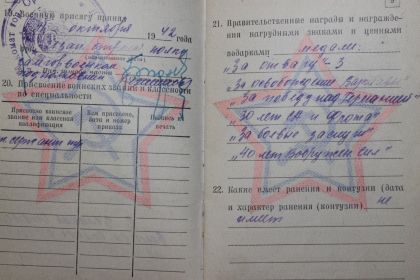 19. Военную присягу принял
октября 1942 года
20. Присвоение воинских званий и классности
по специальности
Присвоено воинское
звание или классная
квалификация
Кем присвоено,
дата и номер
приказа
Подпись и
печать
21. Правительственные награды и награжде-
ния нагрудными знаками и ценными
подарками медали:
"За отвагу" - 3
"За освобождение Варшавы"
"За победу над Германией"
"30 лет СА и Флота"
"За боевые заслуги"
"40 лет Вооружен. сил"
22. Какие имеет ранения и контузии (дата
и характер ранения (контузии) не
имеет